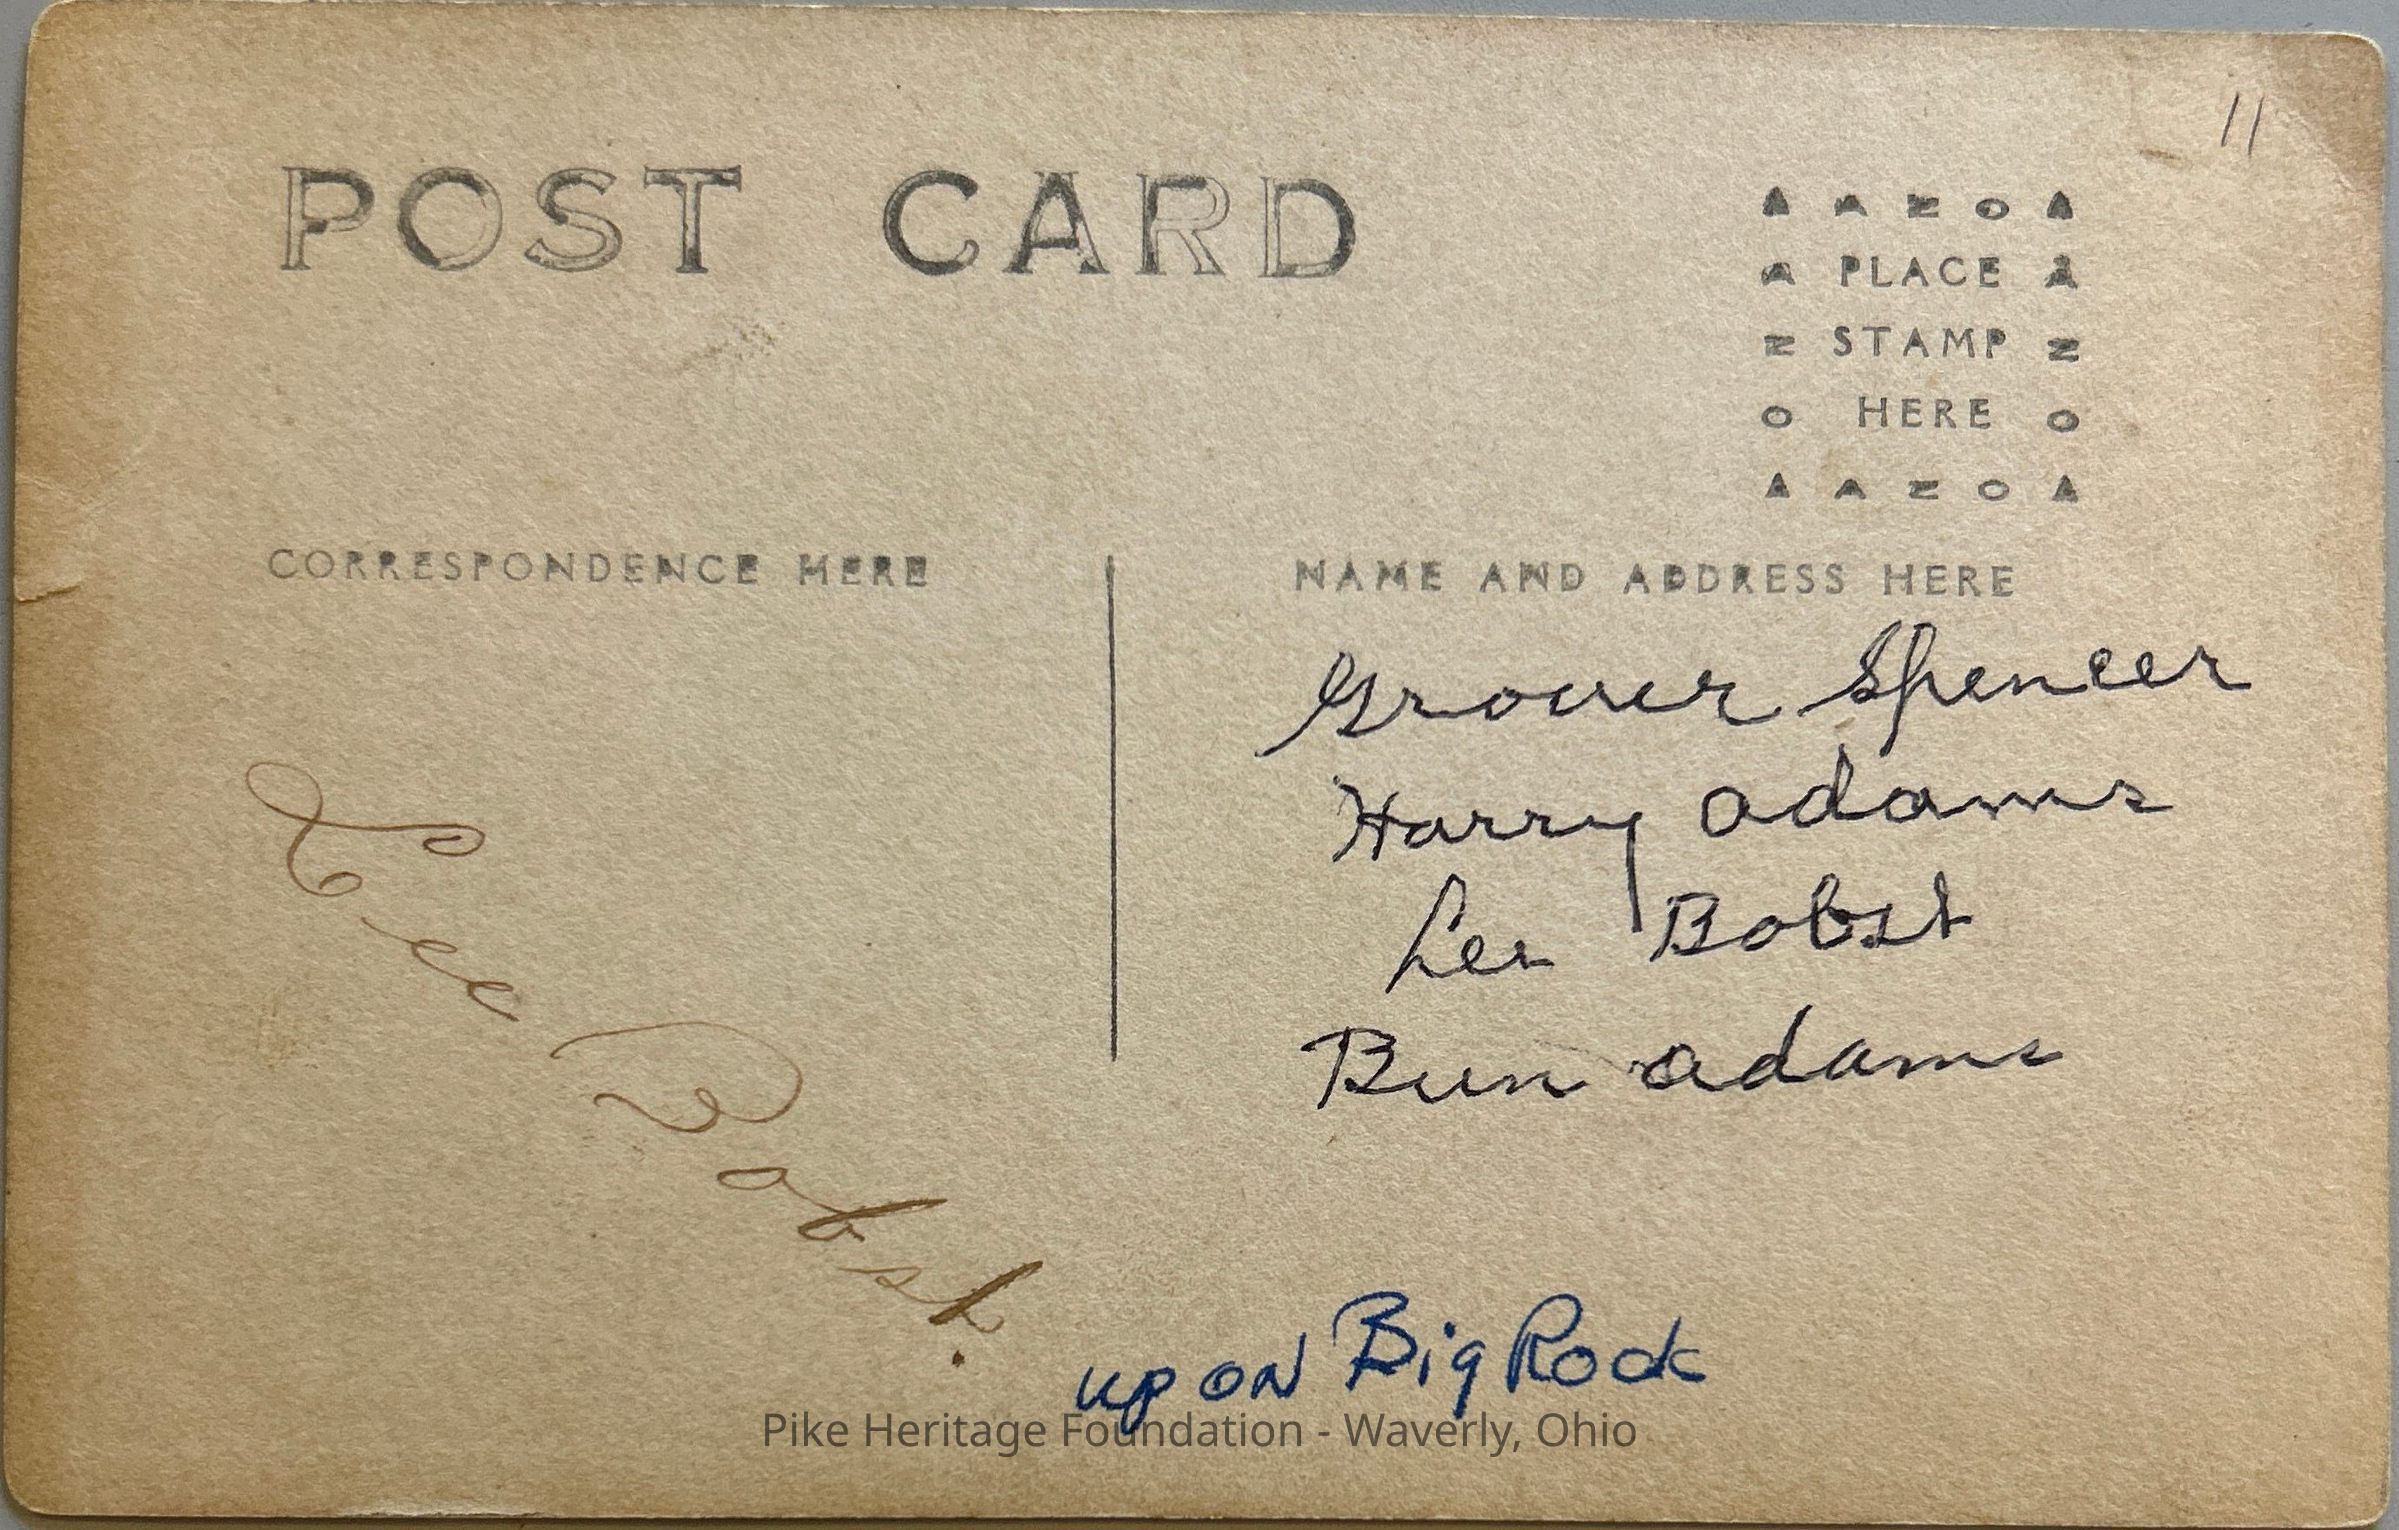 11
POST CARD
AZOA
PLACE
STAMP
HERE
AZOA
CORRESPONDENCE HERE
NAME AND ADDRESS HERE
Grover Spencer
Harry adams
Lee Bobst
Bun adams
Lee Bobst.
up on Big Rock
Pike Heritage Foundation - Waverly, Ohio